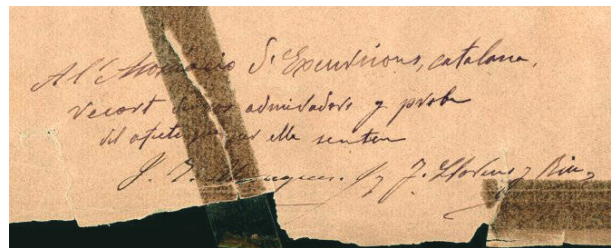 A l'Associació d'Excursions, catalana,
recort de sos admiradors y proba
del afecte que per ella senten
J. Llorens y Riu